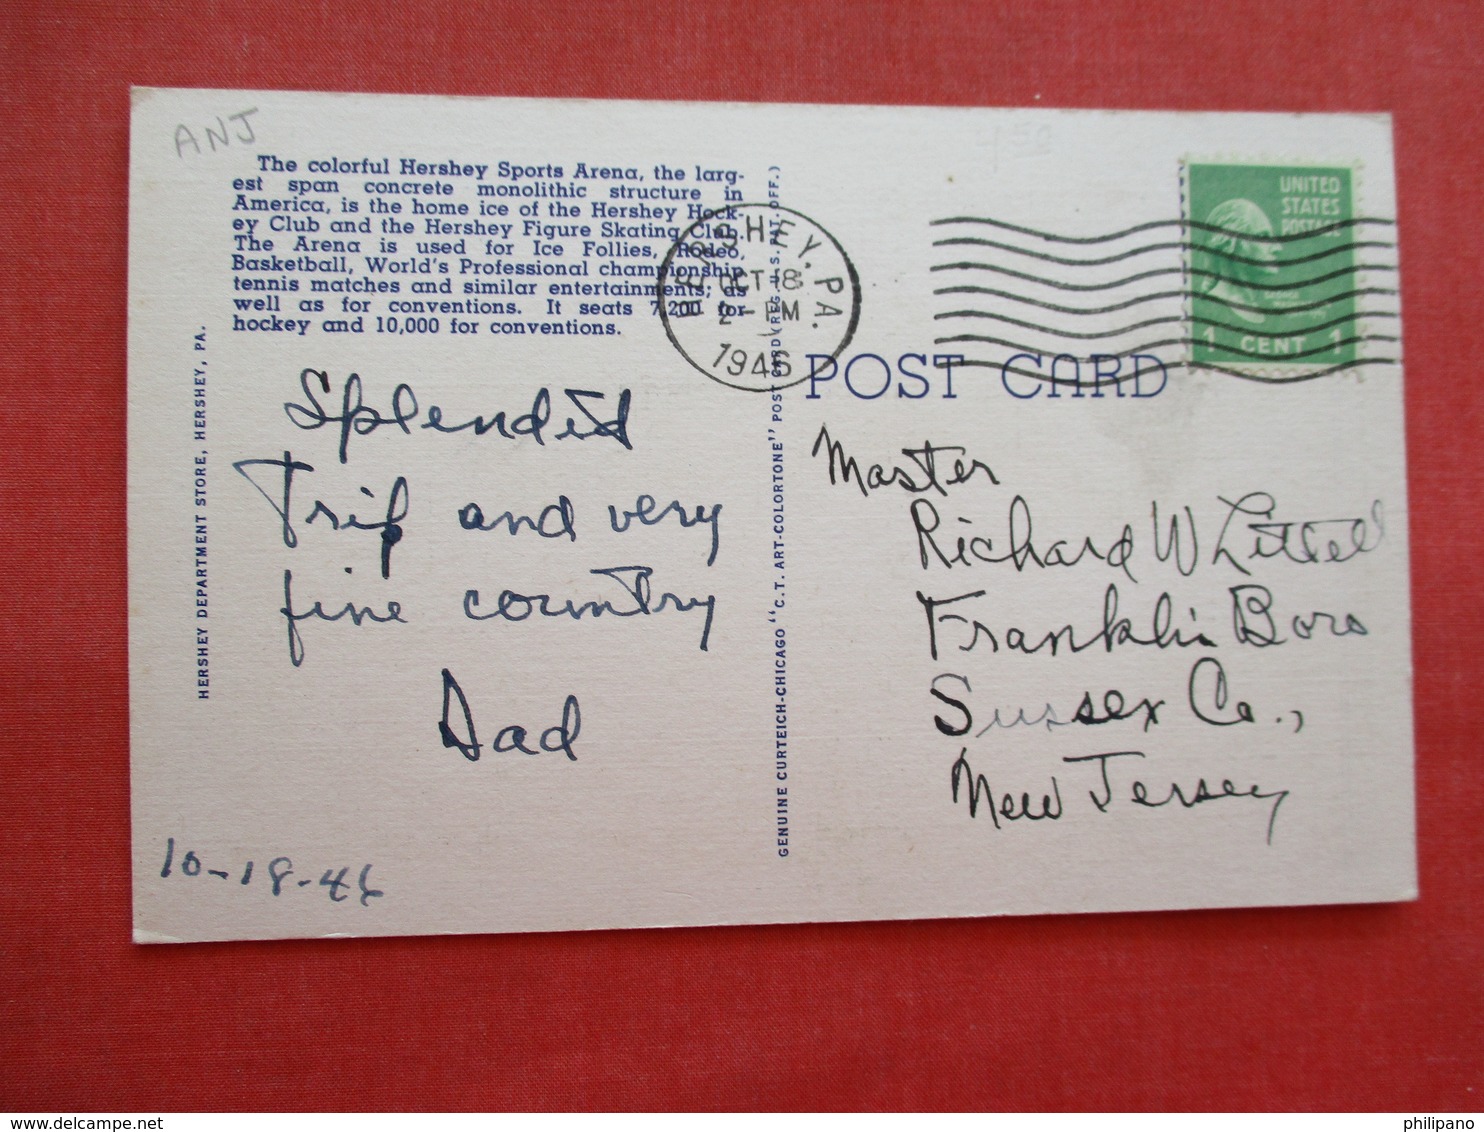 ANJ
The colorful Hershey Sports Arena, the larg-
est span concrete monolithic structure in
America, is the home ice of the Hershey Hock-
ey Club and the Hershey Figure Skating Club.
The Arena is used for Ice Follies, Rodeo,
Basketball, World's Professional championship
tennis matches and similar entertainments; as
well as for conventions. It seats 7,200 for
hockey and 10,000 for conventions.
HERSHEY DEPARTMENT STORE, HERSHEY, PA.
Splendid
Trip and very
fine country
Dad
10-18-46
GENUINE CURTEICH-CHICAGO "C.T. ART-COLORTONE" POST CARD (REG. U.S. PAT. OFF.)
HERSHEY, PA.
OCT 18
2-PM
1946
UNITED
STATES
POSTAGE
1 CENT 1
POST CARD
Master
Richard W Littell
Franklin Boro
Sussex Co.,
New Jersey
philipano